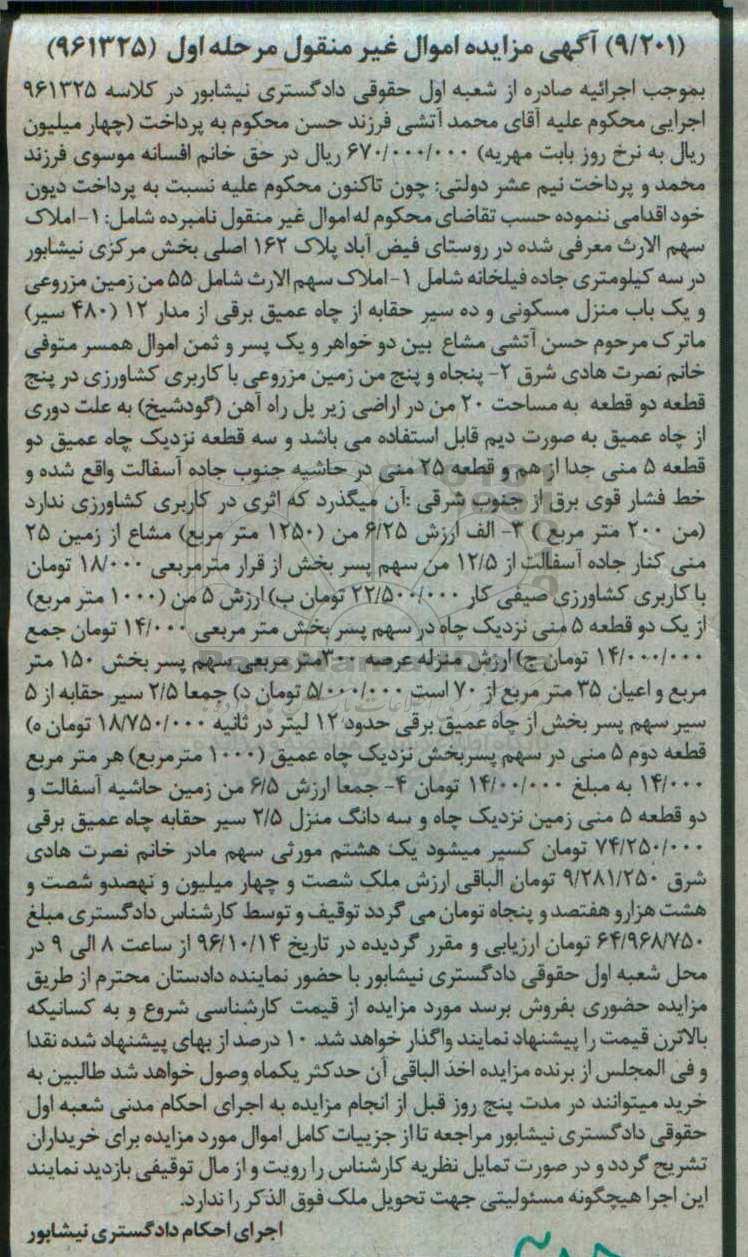 (۹/۲۰۱) آگهی مزایده اموال غیر منقول مرحله اول (۹۶۱۳۲۵)
بموجب اجرائیه صادره از شعبه اول حقوقی دادگستری نیشابور در کلاسه ۹۶۱۳۲۵
اجرایی محکوم علیه آقای محمد آتشی فرزند حسن محکوم به پرداخت (چهار میلیون
ریال به نرخ روز بابت مهریه) ۶۷۰/۰۰۰/۰۰۰ ریال در حق خانم افسانه موسوی فرزند
محمد و پرداخت نیم عشر دولتی: چون تاکنون محکوم علیه نسبت به پرداخت دیون
خود اقدامی ننموده حسب تقاضای محکوم له اموال غیر منقول نامبرده شامل: ۱- املاک
سهم الارث معرفی شده در روستای فیض آباد پلاک ۱۶۲ اصلی بخش مرکزی نیشابور
در سه کیلومتری جاده فیلخانه شامل ۱- املاک سهم الارث شامل ۵۵ من زمین مزروعی
و یک باب منزل مسکونی و ده سیر حقابه از چاه عمیق برقی از مدار ۱۲ (۴۸۰ سیر)
ماترک مرحوم حسن آتشی مشاع بین دو خواهر و یک پسر و ثمن اموال همسر متوفی
خانم نصرت هادی شرق ۲- پنجاه و پنج من زمین مزروعی با کاربری کشاورزی در پنج
قطعه دو قطعه به مساحت ۲۰ من در اراضی زیر پل راه آهن (گودشیخ) به علت دوری
از چاه عمیق به صورت دیم قابل استفاده می باشد و سه قطعه نزدیک چاه عمیق دو
قطعه ۵ منی جدا از هم و قطعه ۲۵ منی در حاشیه جنوب جاده آسفالت واقع شده و
خط فشار قوی برق از جنوب شرقی :آن میگذرد که اثری در کاربری کشاورزی ندارد
(من ۲۰۰ متر مربع) ۳- الف ارزش ۶/۲۵ من (۱۲۵۰ متر مربع) مشاع از زمین ۲۵
منی کنار جاده آسفالت از ۱۲/۵ من سهم پسر بخش از قرار مترمربعی ۱۸/۰۰۰ تومان
با کاربری کشاورزی صیفی کار ۲۲/۵۰۰/۰۰۰ تومان ب) ارزش ۵ من (۱۰۰۰ متر مربع)
از یک دو قطعه ۵ منی نزدیک چاه در سهم پسر بخش متر مربعی ۱۴/۰۰۰ تومان جمع
۱۴/۰۰۰/۰۰۰ تومان ج) ارزش منزله عرصه ۳۰۰متر مربعی سهم پسر بخش ۱۵۰ متر
مربع و اعیان ۳۵ متر مربع از ۷۰ است ۵/۰۰۰/۰۰۰ تومان د) جمعا ۲/۵ سیر حقابه از ۵
سیر سهم پسر بخش از چاه عمیق برقی حدود ۱۲ لیتر در ثانیه ۱۸/۷۵۰/۰۰۰ تومان ه)
قطعه دوم ۵ منی در سهم پسربخش نزدیک چاه عمیق (۱۰۰۰ مترمربع) هر متر مربع
۱۴/۰۰۰ به مبلغ ۱۴/۰۰/۰۰۰ تومان ۴- جمعا ارزش ۶/۵ من زمین حاشیه آسفالت و
دو قطعه ۵ منی زمین نزدیک چاه و سه دانگ منزل ۲/۵ سیر حقابه چاه عمیق برقی
۷۴/۲۵۰/۰۰۰ تومان کسیر میشود یک هشتم مورثی سهم مادر خانم نصرت هادی
شرق ۹/۲۸۱/۲۵۰ تومان الباقی ارزش ملک شصت و چهار میلیون و نهصدو شصت و
هشت هزارو هفتصد و پنجاه تومان می گردد توقیف و توسط کارشناس دادگستری مبلغ
۶۴/۹۶۸/۷۵۰ تومان ارزیابی و مقرر گردیده در تاریخ ۹۶/۱۰/۱۴ از ساعت ۸ الی ۹ در
محل شعبه اول حقوقی دادگستری نیشابور با حضور نماینده دادستان محترم از طریق
مزایده حضوری بفروش برسد مورد مزایده از قیمت کارشناسی شروع و به کسانیکه
بالاترن قیمت را پیشنهاد نمایند واگذار خواهد شد. ۱۰ درصد از بهای پیشنهاد شده نقدا
و فی المجلس از برنده مزایده اخذ الباقی آن حدکثر یکماه وصول خواهد شد طالبین به
خرید میتوانند در مدت پنج روز قبل از انجام مزایده به اجرای احکام مدنی شعبه اول
حقوقی دادگستری نیشابور مراجعه تا از جزییات کامل اموال مورد مزایده برای خریداران
تشریح گردد و در صورت تمایل نظریه کارشناس را رویت و از مال توقیفی بازدید نمایند
این اجرا هیچگونه مسئولیتی جهت تحویل ملک فوق الذکر را ندارد.
اجرای احکام دادگستری نیشابور